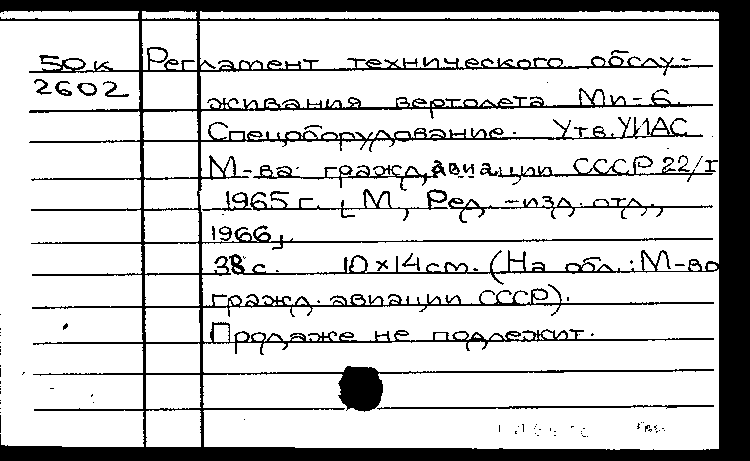 50к Регламент технического обслу-
2602
живания вертолета Ми-6.
Спецоборудование. Утв. УИАС
М-ва гражд. авиации СССР 22/I
1965 г. [М, Ред.-изд. отд.,
1966].
38 с. 10×14 см. (На обл.: М-во
гражд. авиации СССР).
Продаже не подлежит.